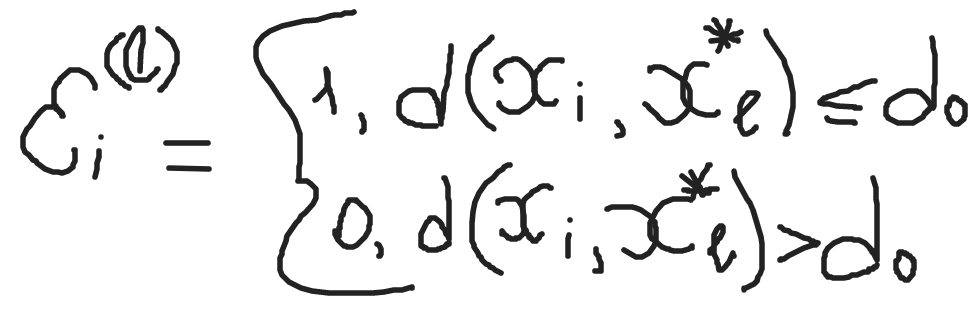 ε_i^{(l)} = { 1, d(x_i, x_l^*) ≤ d_0
0, d(x_i, x_l^*) > d_0